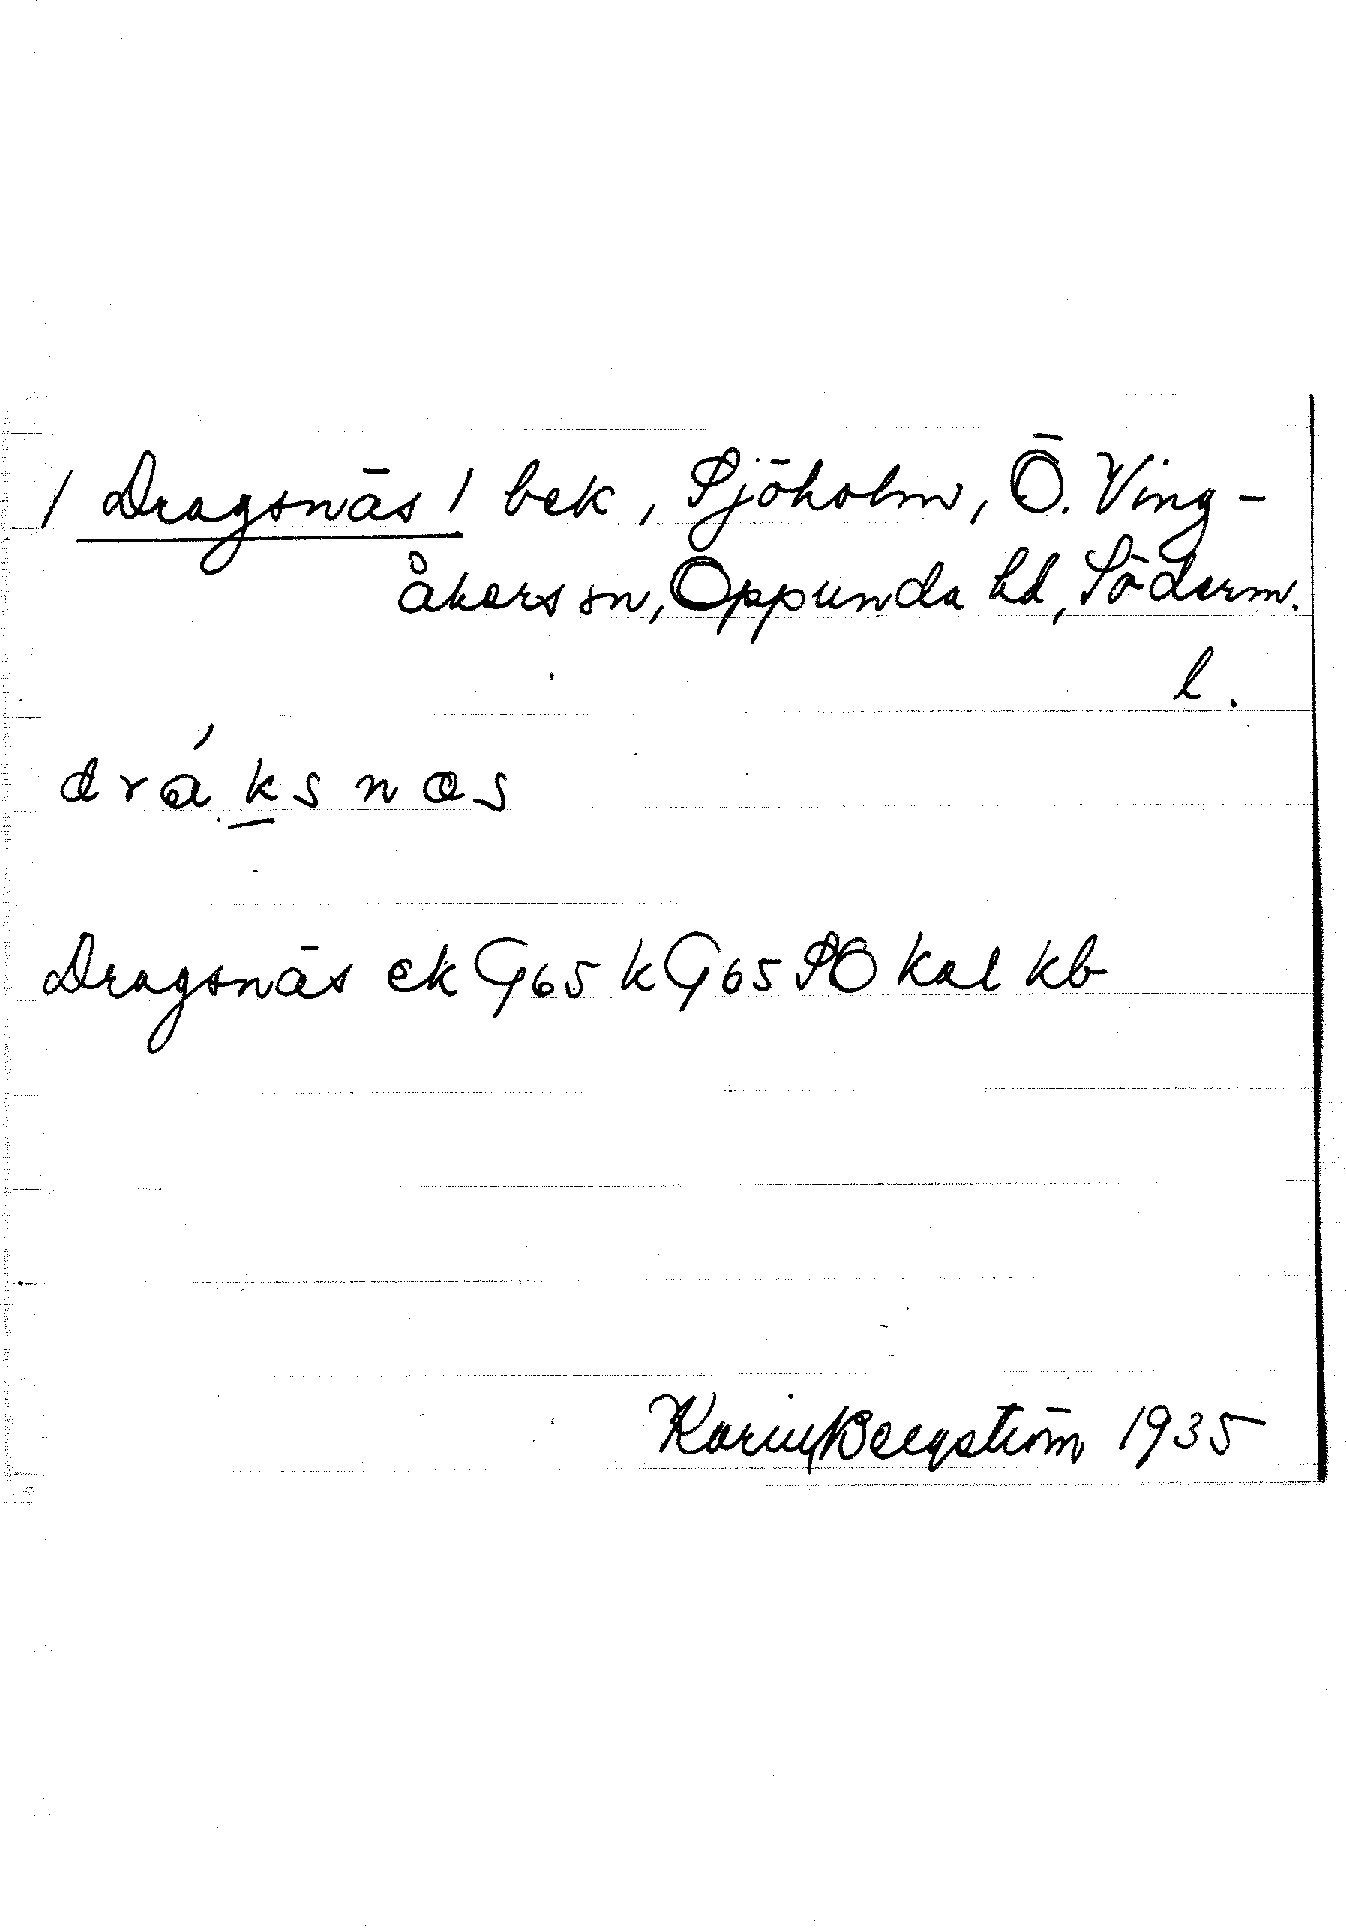 / Dragsnäs / bek, Sjöholm, Ö. Ving-
åkers sn, Oppunda hd, Söderm.
l.
dráksnæs
Dragsnäs ek G65 k G65 SO kal kb
Karin Bergström 1935